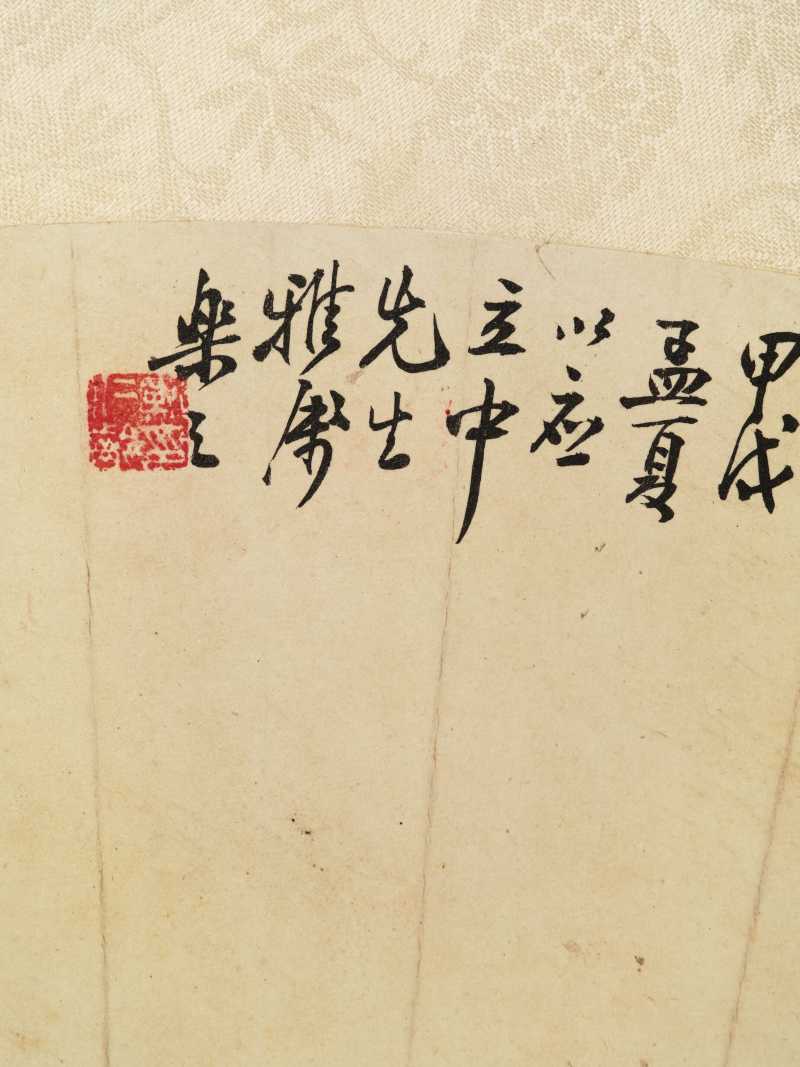 甲戌
孟夏
以應
立中
先生
雅屬
樂之